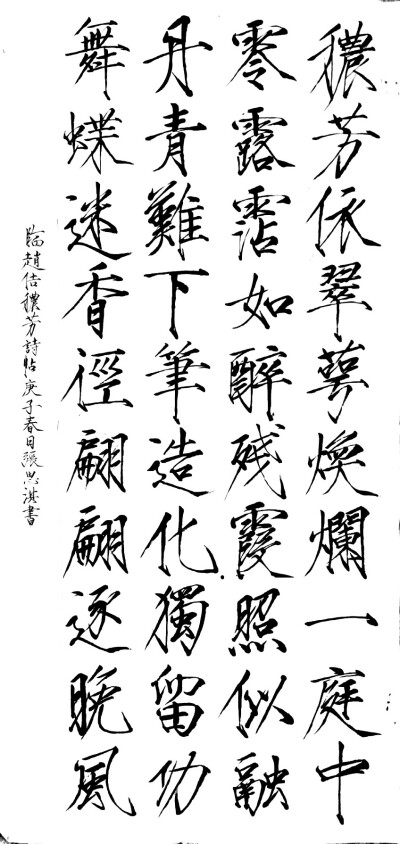 穠芳依翠萼煥爛一庭中
零露霑如醉殘霞照似融
丹青難下筆造化獨留功
舞蝶迷香徑翩翩逐晚風
臨趙佶穠芳詩帖庚子春日張思淇書